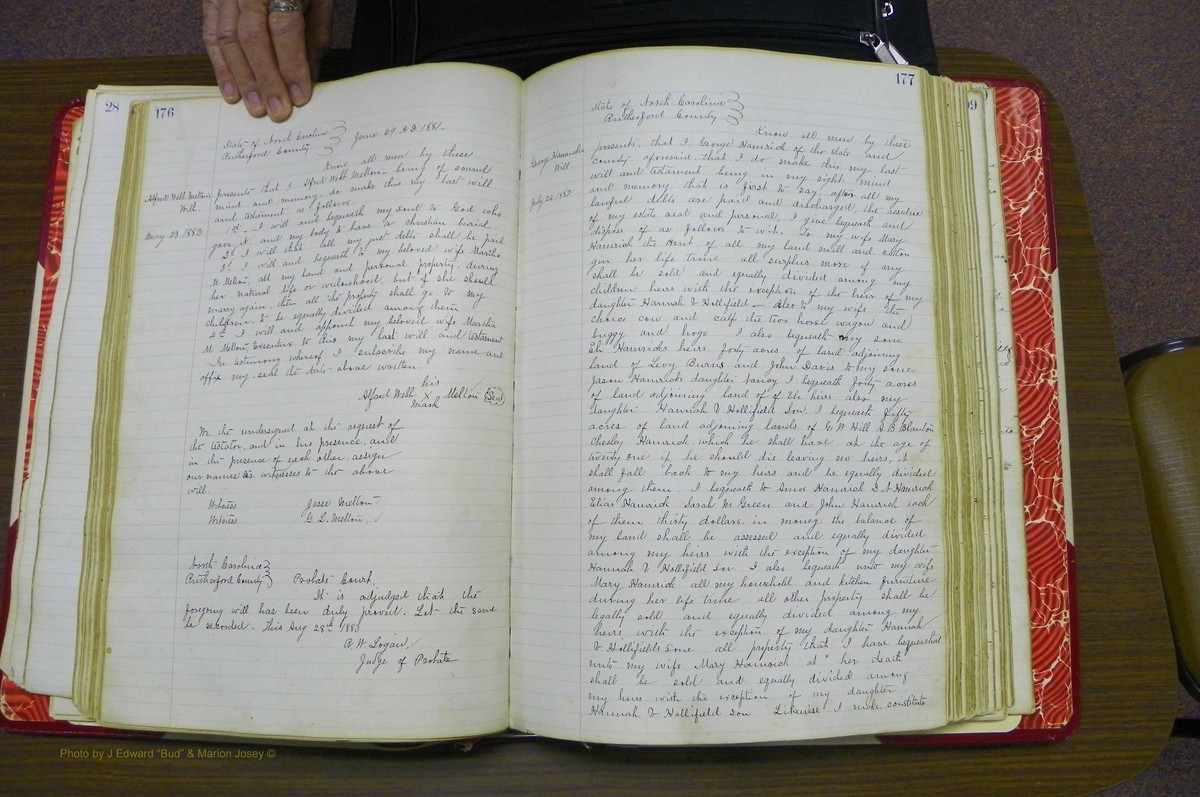 28
176
State of North Carolina
Rutherford County
June 29 A.D 1881
Alfred Webb Mellons
Will.
May 23 1882
Know all men by these
presents that I Alfred Webb Mellon being of sound
mind and memory, do make this my last will
and testament as follows
1st I will and bequeath my soul to God who
gave it, and my body to have a christian burial.
2d I will that all my just debts shall be paid
3d I will and bequeath to my beloved wife Martha
M. Mellon, all my land and personal property, during
her natural life or widowhood, but if she should
marry again, then all the property shall go to my
children, to be equally divided among them
4th I will and appoint my beloved wife Martha
M. Mellon, Executrix to this my last will and testament
In testimony whereof I subscribe my name and
affix my seal the date above written
his
Alfred Webb X Mellon Seal
mark
We the undersigned at the request of
the testator, and in his presence, and
in the presence of each other, assign
our names as witnesses to the above
will.
Witness Jesse Mellon
Witness G. L. Mellon
North Carolina
Rutherford County
Probate Court.
It is adjudged that the
foregoing will has been duly proved. Let the same
be recorded. This Aug 28th 188
A. W. Logan,
Judge of Probate
177
State of North Carolina
Rutherford County
George Hamrick
Will
July 24 1882
Know all men by these
presents, that I George Hamrick of the state and
county aforesaid, that I do make this my last
will and testament being in my right mind
and memory, that is first to say, after all my
lawful debts are paid and discharged, the residue
of my estate real and personal, I give bequeath and
dispose of as follows to wit. To my wife Mary
Hamrick the Rent of all my land mill and cotton
gin her life time all surplus more if any
shall be sold and equally divided among my
children heirs with the exception of the heir of my
daughter Hannah V Hollifield - Also to my wife the
choice cow and calf the two horse wagon and
buggy and hogs I also bequeath my sone
Eli Hamricks heirs forty acres of land adjoining
land of Levy Burns and John Davis to my sone
Jason Hamricks daughter Nancy I bequeath forty acres
of land adjoining land of of Eli heirs also my
daughter Hannah V Hollifield Son. I bequeath fifty
acres of land adjoining lands of G W Hill A B Blanton
Chesley Hamrick which he shall have at the age of
twenty one if he should die leaving no heirs, it
shall fall back to my heirs and be equally divided
among them. I bequeath to Amos Hamrick D A Hamrick
Elias Hamrick Sarah M Green and John Hamrick each
of them thirty dollars in money the balance of
my land shall be assessed and equally divided
among my heirs with the exception of my daughter
Hannah V Hollifield Son I also bequeath unto my wife
Mary Hamrick all my household and kitchen furniture
during her life time all other property shall be
legally sold and equally divided among my
heirs with the exception of my daughter Hannah
V Hollifields sone all property that I have bequeathed
unto my wife Mary Hamrick at "her death"
shall be sold and equally divided among
my heirs with the exception of my daughter
Hannah V Hollifield son Likewise I make constitute
Photo by J Edward "Bud" & Marion Josey ©